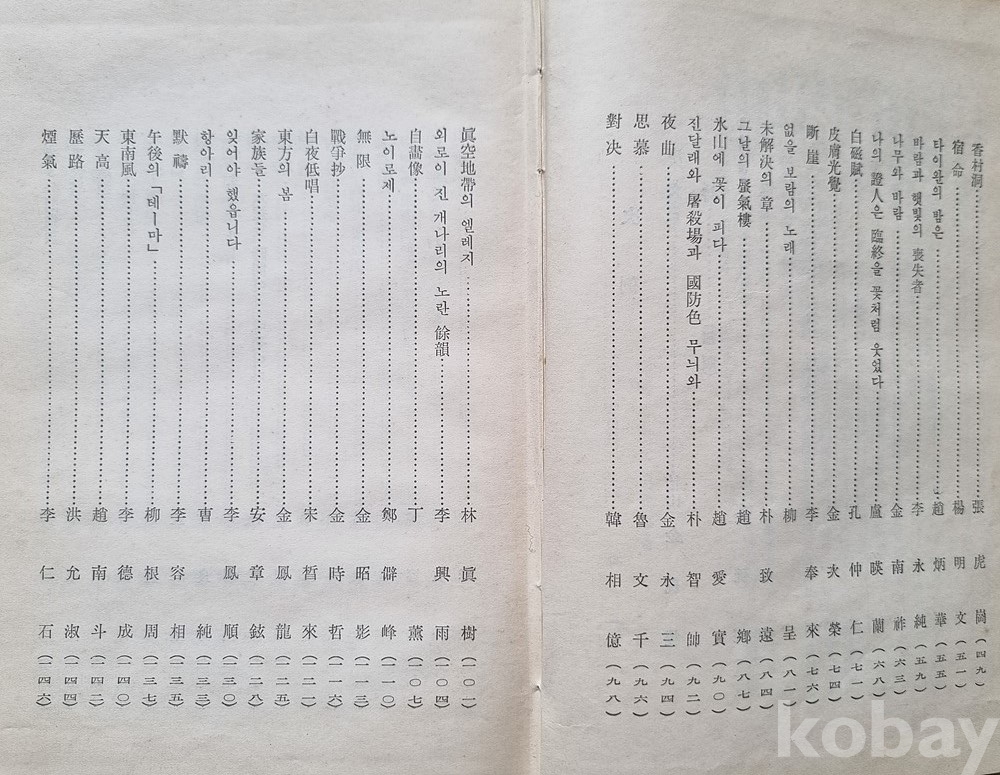 香村洞 張虎崗 (四九)
宿命 楊明文 (五一)
타이완의 밤은 趙炳華 (五五)
바람과 햇빛의 喪失者 李永純 (五九)
나무와 바람 金南祚 (六三)
나의 證人은 臨終을 꽃처럼 웃었다 盧暎蘭 (六八)
白磁賦 孔仲仁 (七一)
皮膚光覺 金次榮 (七四)
斷崖 李奉來 (七六)
없을 보람의 노래 柳呈 (八一)
未解決의 章 朴致遠 (八四)
그날의 蜃氣樓 趙鄕 (八七)
氷山에 꽃이 피다 趙愛實 (九〇)
진달래와 屠殺場과 國防色 무늬와 朴智帥 (九二)
夜曲 金永三 (九四)
思慕 魯文千 (九六)
對决 韓相億 (九八)
眞空地帶의 엘레지 林眞樹 (一〇一)
외로이 진 개나리의 노란 餘韻 李興雨 (一〇四)
自畵像 丁薰 (一〇七)
노이로제 鄭僻峰 (一一〇)
無限 金昭影 (一一三)
戰爭抄 金時哲 (一一六)
白夜低唱 宋晳來 (一二一)
東方의 봄 金鳳龍 (一二五)
家族들 安章鉉 (一二八)
잊어야 했읍니다 李鳳順 (一三〇)
항아리 曺純 (一三三)
默禱 李容相 (一三五)
午後의 「테ー마」 柳根周 (一三七)
東南風 李德成 (一四〇)
天高 趙南斗 (一四二)
歷路 洪允淑 (一四四)
煙氣 李仁石 (一四六)
kobay